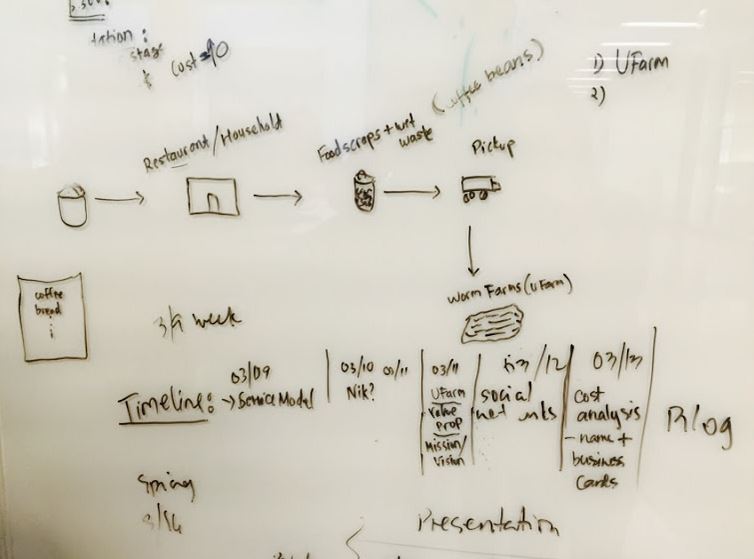 tation:
stage
$ Cost=90
(coffee beans)
1) UFarm
2)
Restaurant/Household
Foodscraps+wet
waste
Pickup
coffee
bread
Worm Farms (UFarm)
3/9 week
Timeline:
03/09
→Service Model
03/10
Nik?
03/11
UFarm
value
prop
Mission/
Vision
/12
social
net
03/13
cost
analysis
- name +
business
Cards
Blog
Spring
Presentation